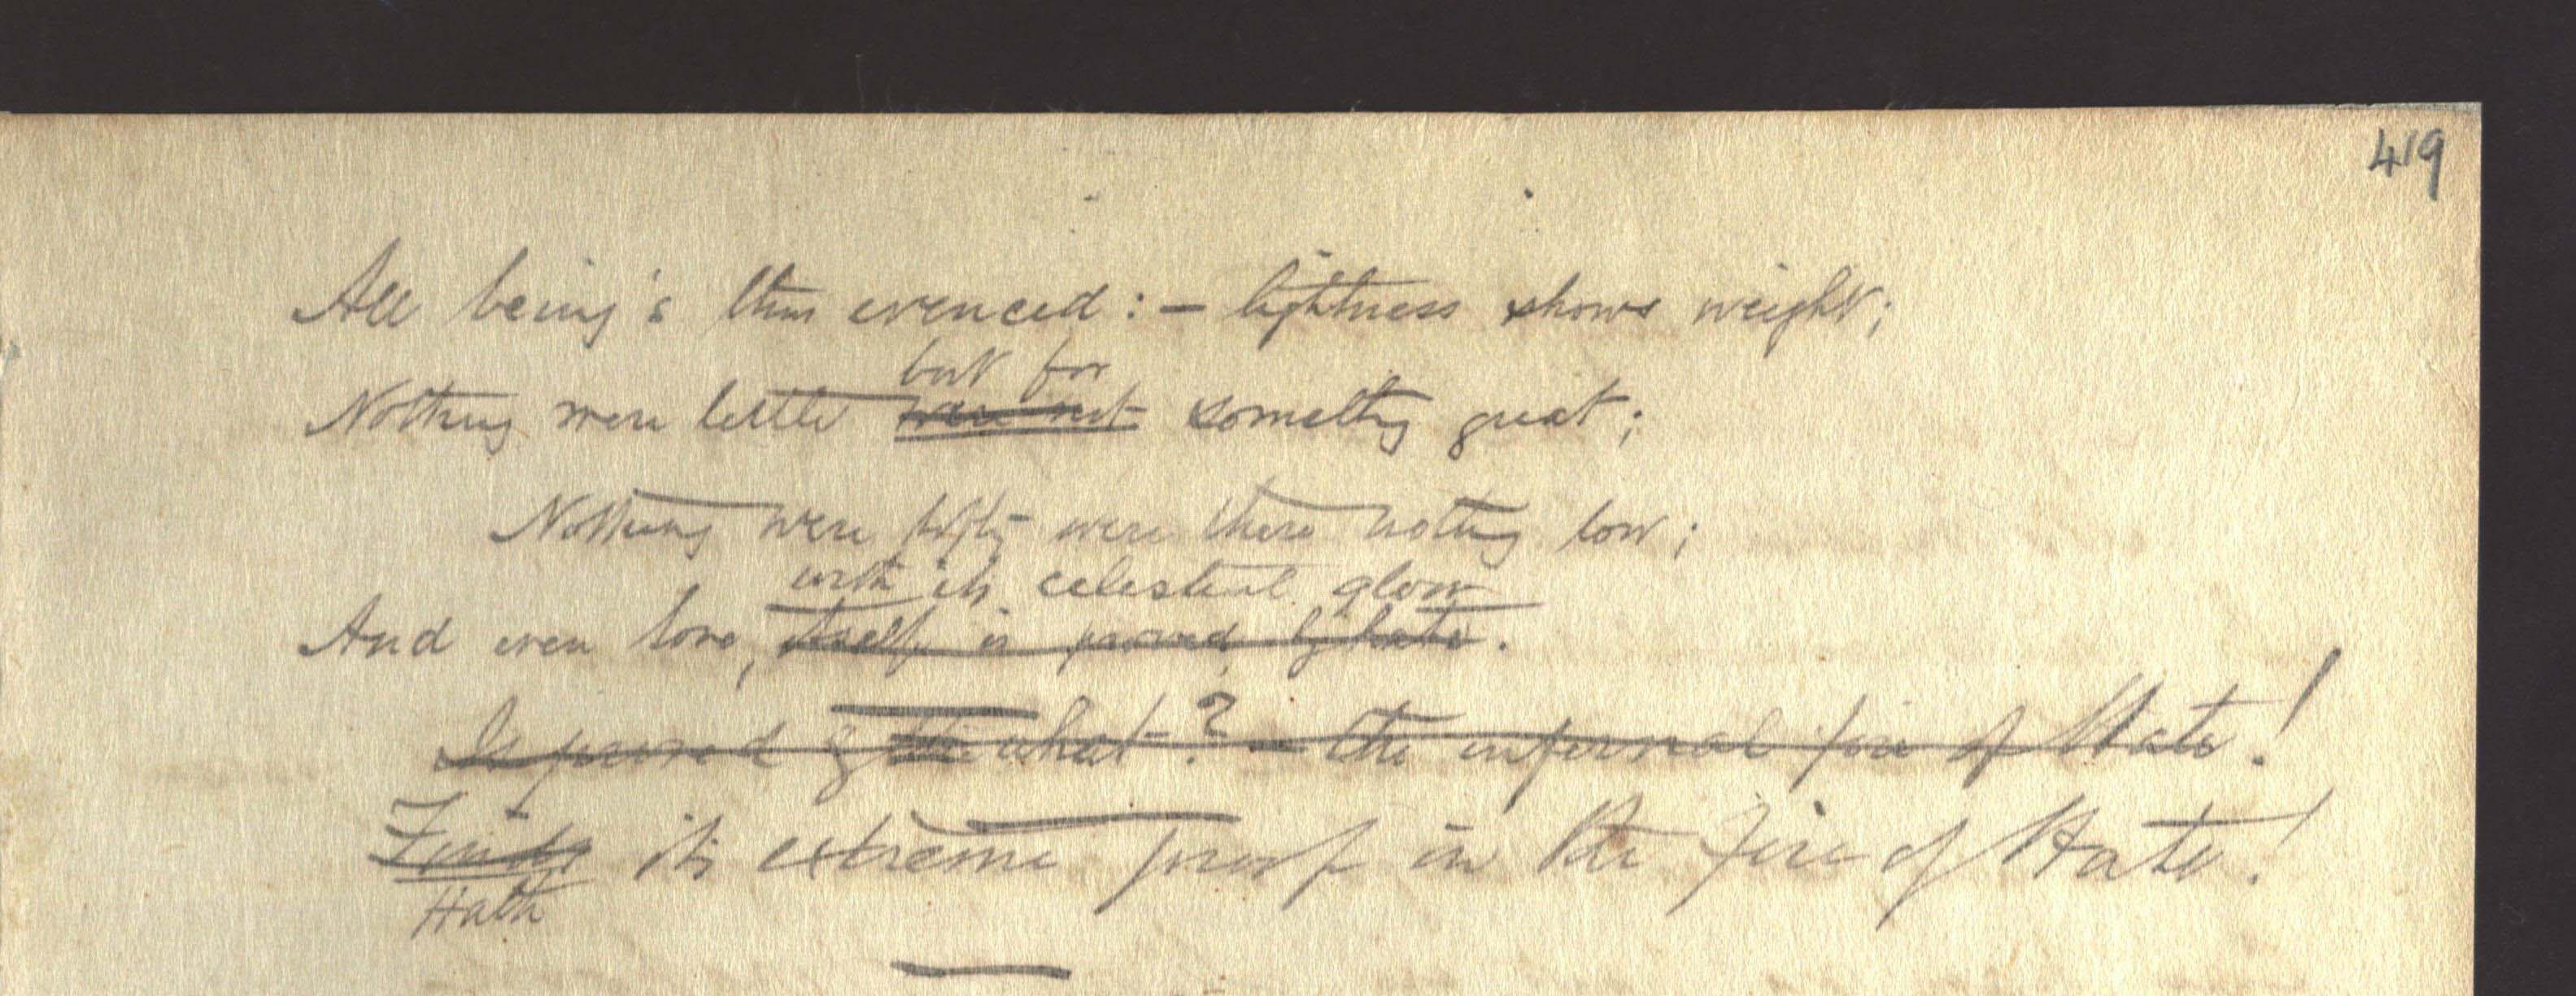 419
All being's thus evenced: – lightness shows weight;
but for
Nothing were little were not something great;
Nothing were lofty were there nothing low;
with its celestial glow
And even love, itself, is proved by hate.
Is proved by what? – the infernal fire of Hate!
Finds its extreme proof in the fire of Hate!
Hath